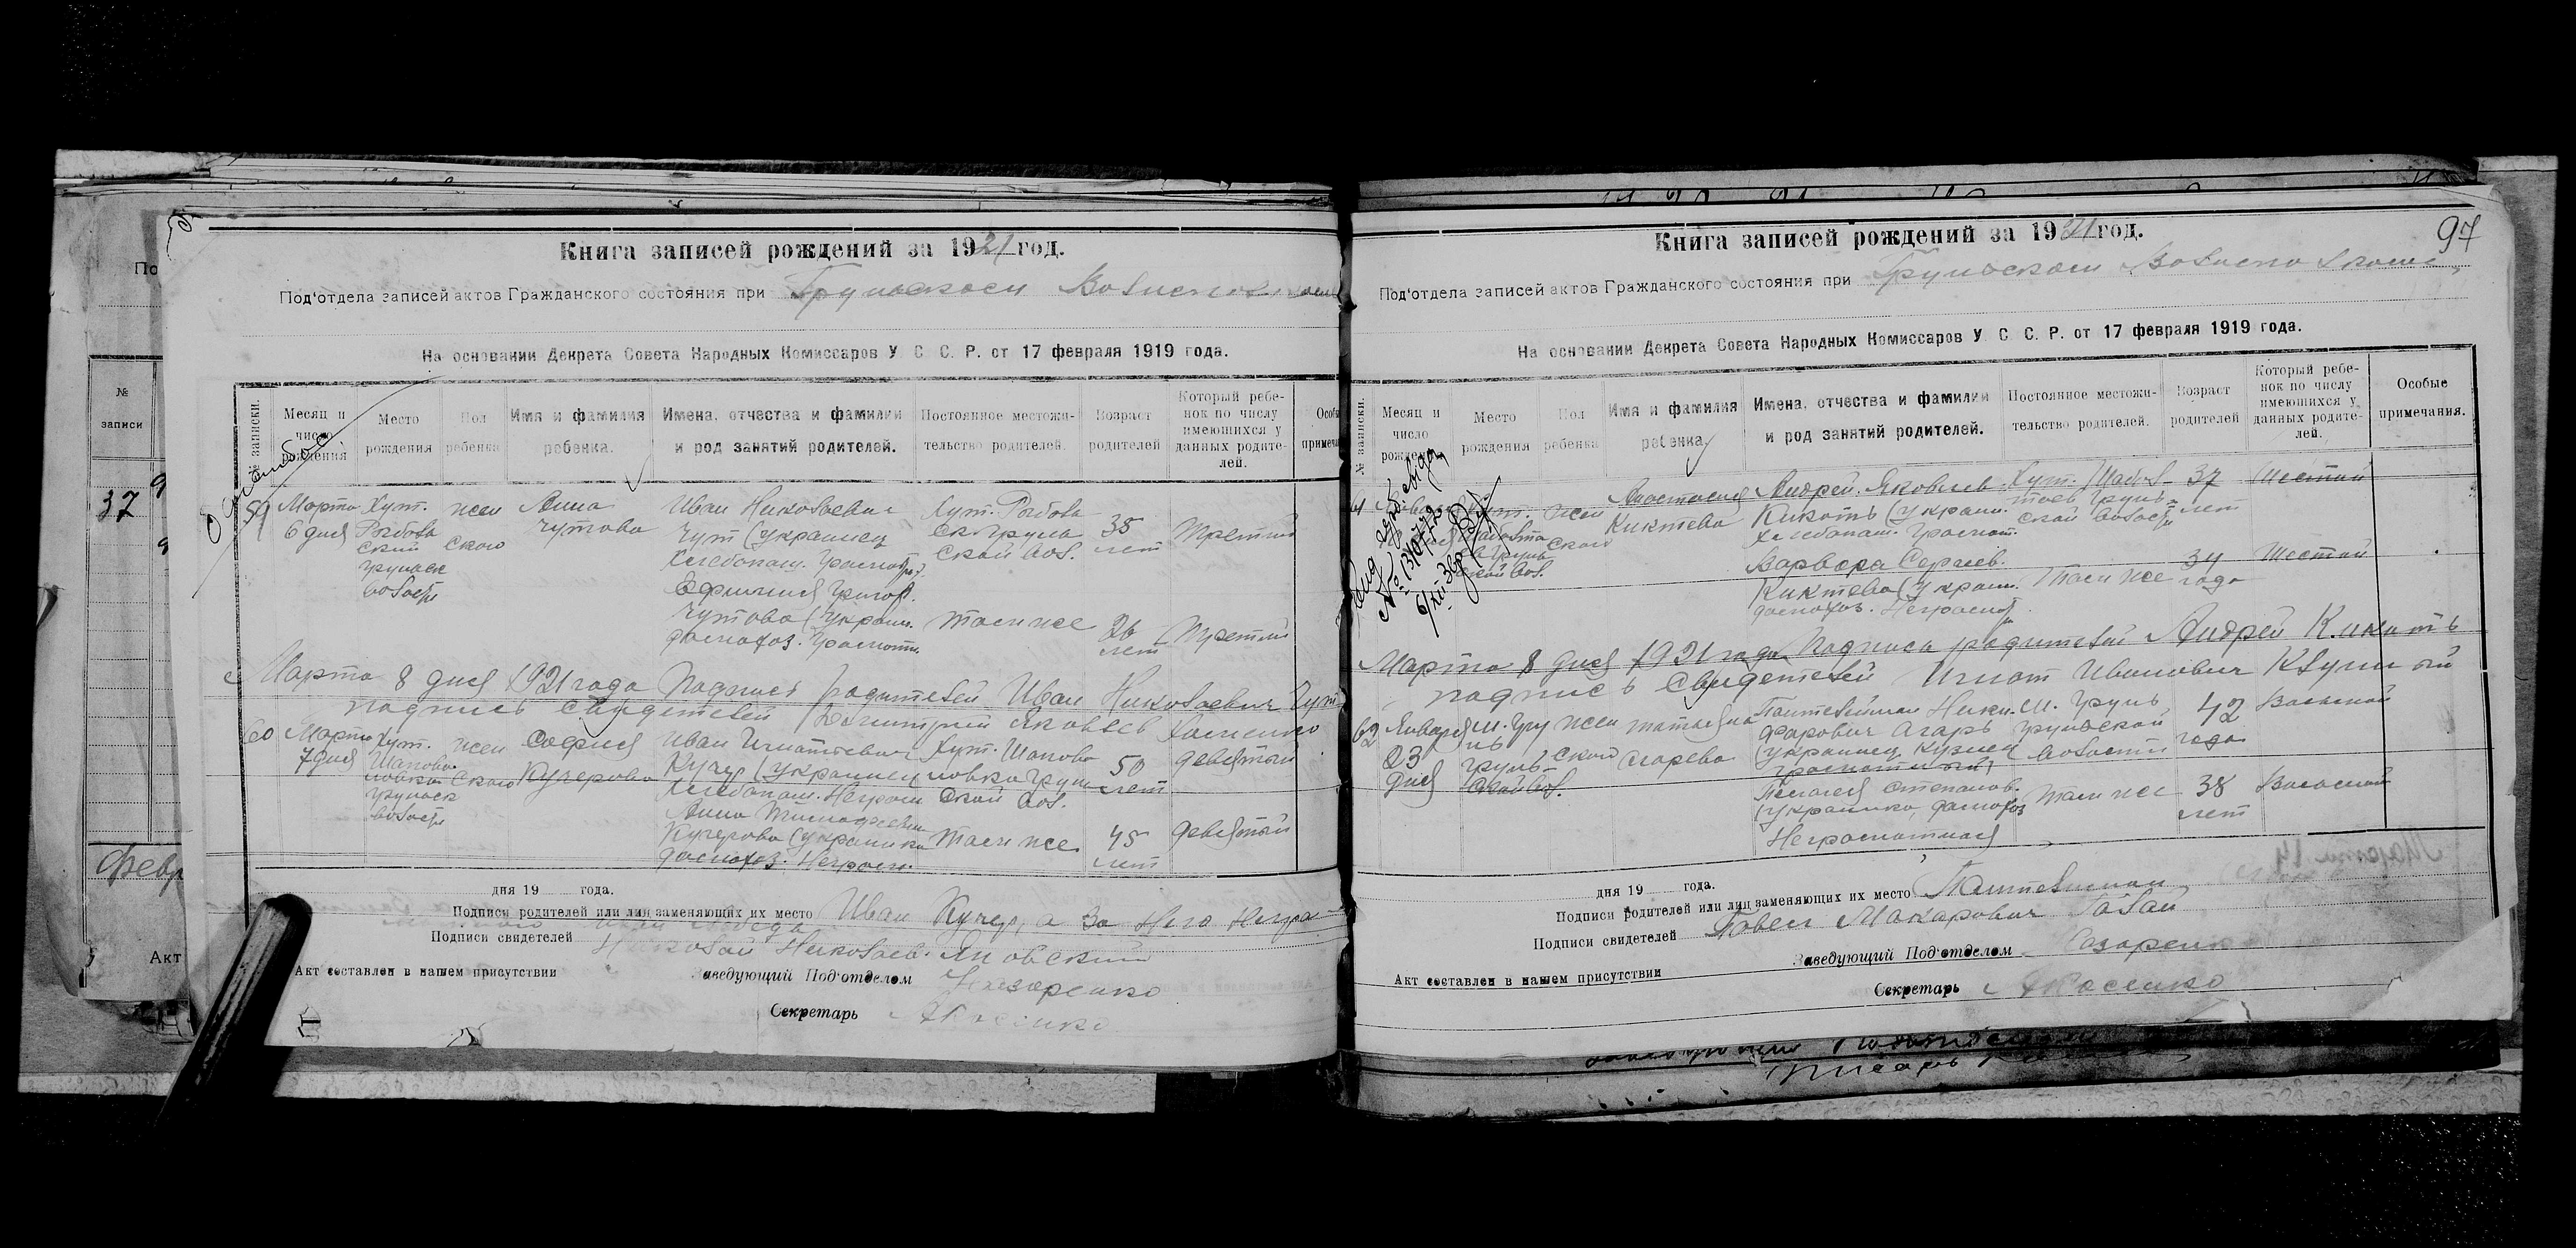 Книга записей рождений за 1921 год.
Под'отдела записей актов Гражданского состояния при Груньском Волисполкоме
На основании Декрета Совета Народных Комиссаров У С С. Р. от 17 февраля 1919 года.
№ записки.
Месяц и число рождения
Место рождения
Пол ребенка
Имя и фамилия ребенка.
Имена, отчества и фамилии и род занятий родителей.
Постоянное местожительство родителей.
Возраст родителей
Который ребенок по числу имеющихся у данных родителей.
59
Марта
6 дня
Хут.
Рыбова
ский
груньск
волости
жен
ского
Анна
Чутова
Иван Николаевич
Чут (украинец
Хлебопаш. Грамотн.
Ефимия Григор.
Чутова (украин.
домохоз. Грамотн.
Хут. Рыбова
ск. Грунь
ской вол.
там же
35
лет
26
лет
третий
третий
Марта 8 дня 1921 года Подпись родителей Иван Николаевич Чут
подпись свидетелей Димитрий Яковлев Хоменко
60
Марта
7 дня
Хут.
Шапова
ловка
груньск
волости
жен
ского
София
Кучерова
Иван Игнатьевич
Кучер (украинец
Хлебопаш. Неграм
Анна Тимофеевн
Кучерова (украинка
домохоз. Неграм.
Хут. Шапова
ловка Грун
ской вол.
там же
50
лет
45
лет
девятый
девятый
дня 19 года.
Подписи родителей или лиц заменяющих их место Иван Кучер, а за него негра
Подписи свидетелей Николай Николаев. Яновский
Акт составлен в нашем присутствии
Заведующий Под'отделом Назаренко
Секретарь
№
записи
37
февр
Акт
97
Книга записей рождений за 1921 год.
Под'отдела записей актов Гражданского состояния при Груньском Волисполкоме
На основании Декрета Совета Народных Комиссаров У С С. Р. от 17 февраля 1919 года.
№ записки.
Месяц и число рождения
Место рождения
Пол ребенка
Имя и фамилия ребенка
Имена, отчества и фамилии и род занятий родителей.
Постоянное местожительство родителей.
Возраст родителей
Который ребенок по числу имеющихся у данных родителей.
Особые примечания.
жен
ского
Анастасия
Киктева
Андрей Яковлев.
Кикоть (украин.
Хлебопаш. Грамот.
Варвара Сергиев.
Киктева (украин.
домохоз. Неграмот
там же
37
лет
34
года
Шестой
Шестой
Марта 8 дня 1921 года Подпись родителей Андрей Кикоть
подпись свидетелей Игнат Иванович
62
Января
23
дня
м. Гру
нь
Грунь
ской вол.
жен
ской
татьяна
Агарева
Пантелеймон Ники.
фарович Агарь
(украинец, кузнец
грамотный)
Пелагея Степанов.
(украинка, домохоз
Неграмотная
м. Грунь
Груньской
волости
там же
42
года
38
лет
Восьмой
Восьмой
дня 19 года.
Подписи родителей или лиц заменяющих их место Пантелимон
Подписи свидетелей Павел Макарович
Акт составлен в нашем присутствии
Заведующий Под'отделом Назаренко
Секретарь